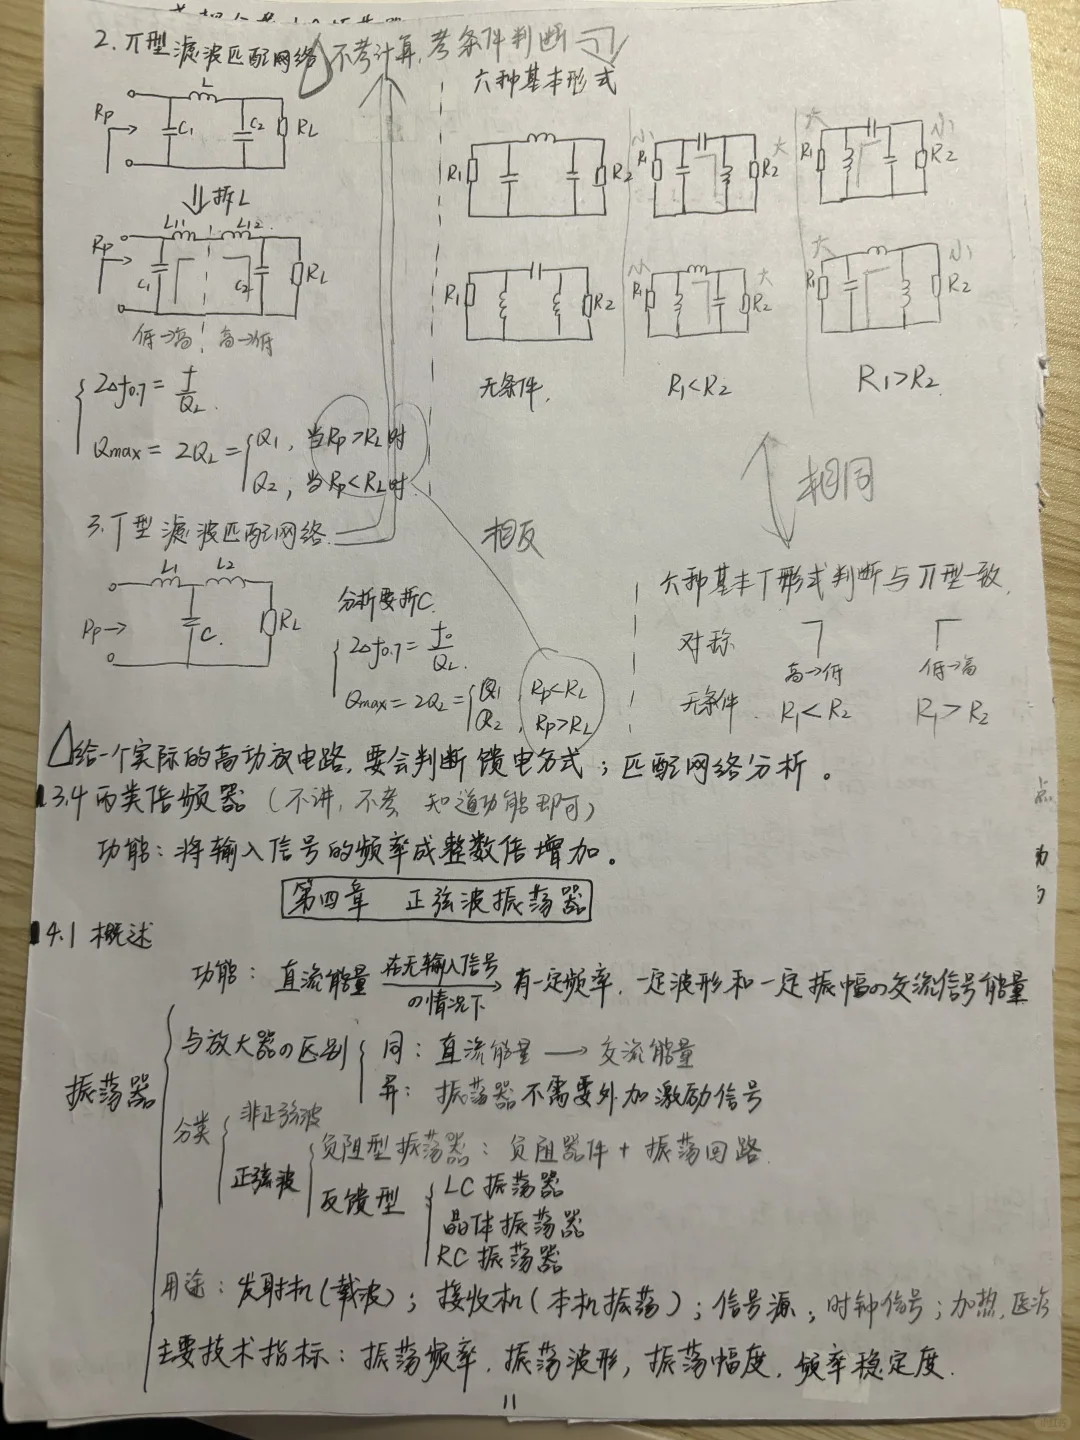 2. π型滤波匹配网络 △不考计算,考条件判断
六种基本形式
L
Rp C1 C2 RL
⇓拆L
L11 L12
Rp C1 C2 RL
低→高 高→低
R1 R2
小 R1 大 R2
大 R1 小 R2
R1 R2
小 R1 大 R2
大 R1 小 R2
无条件. R1<R2 R1>R2
2△f0.7 = f/QL.
Qmax = 2QL = { Q1, 当Rp>RL时
Q2, 当Rp<RL时.
相反
相同
3. T型滤波匹配网络.
L1 L2
Rp→ C. RL
分析要拆C.
2△f0.7 = f0/QL.
Qmax = 2QL = { Q1, Rp<RL
Q2, Rp>RL
六种基本T形式判断与π型一致.
对称
高→低 低→高
无条件. R1<R2 R1>R2
△给一个实际的高功放电路,要会判断馈电方式;匹配网络分析。
3.4 丙类倍频器(不讲,不考 知道功能即可)
功能:将输入信号的频率成整数倍增加。
第四章 正弦波振荡器
4.1 概述
功能: 直流能量 在无输入信号の情况下→ 有一定频率,一定波形和一定振幅の交流信号能量
振荡器
与放大器の区别 { 同: 直流能量 → 交流能量
异: 振荡器不需要外加激励信号
分类 { 非正弦波
正弦波 { 负阻型振荡器: 负阻器件 + 振荡回路.
反馈型 { LC振荡器
晶体振荡器
RC振荡器
用途: 发射机(载波); 接收机(本机振荡); 信号源; 时钟信号; 加热,医治
主要技术指标: 振荡频率,振荡波形,振荡幅度,频率稳定度.
11